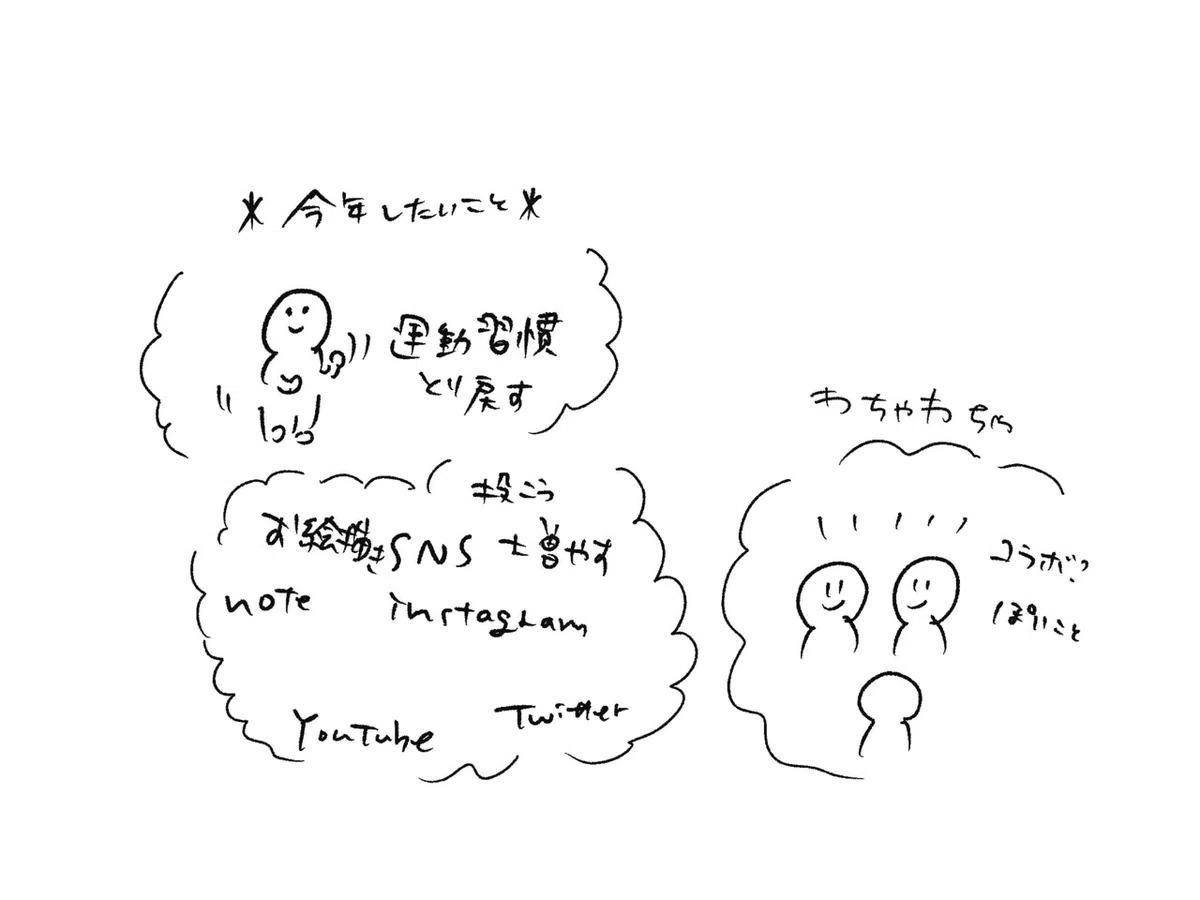 *今年したいこと*
運動習慣
とり戻す
投こう
お絵描きSNS も増やす
note instagram
YouTube Twitter
わちゃわちゃ
コラボ?
ぽいこと